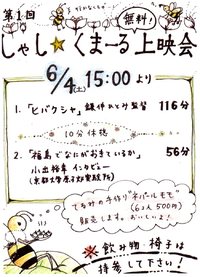 第1回
無料!
しゃし★くまーる上映会
6/4(土) 15:00より
1. 「ヒバクシャ」 鎌仲ひとみ監督 116分
10分休憩
2. 「福島でなにがおきているか」 56分
小出裕章 インタビュー
(京都大学原子炉実験所)
てるみの手作りネパールモモ
(6コ入 500円)
販売します。おいしいよ!
※飲み物・椅子は
持参して下さい!